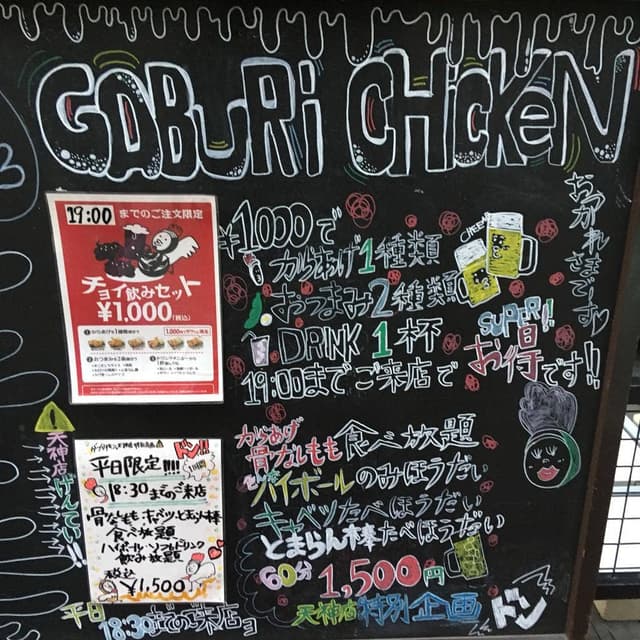 GABURi CHicKeN
おつかれさまでーすッ
19:00 までのご注文限定
チョイ飲みセット
¥1,000(税込)
¥1000で
からあげ1種類
おつまみ2種類
DRINK 1杯
19:00までご来店で
CHEERS
SUPER!!
お得です!!
天神店げんてい!!
ドン!!
平日限定!!!!
18:30までのご来店
骨なしもも キャベツ とまらん棒
食べ放題
ハイボール・ソフトドリンク
飲み放題
税込
¥1,500
からあげ
骨なしもも食べ放題
ハイボールのみほうだい
キャベツたべほうだい
とまらん棒たべほうだい
60分 1,500円
天神店特別企画
ドン
平日
18:30までの来店ョ